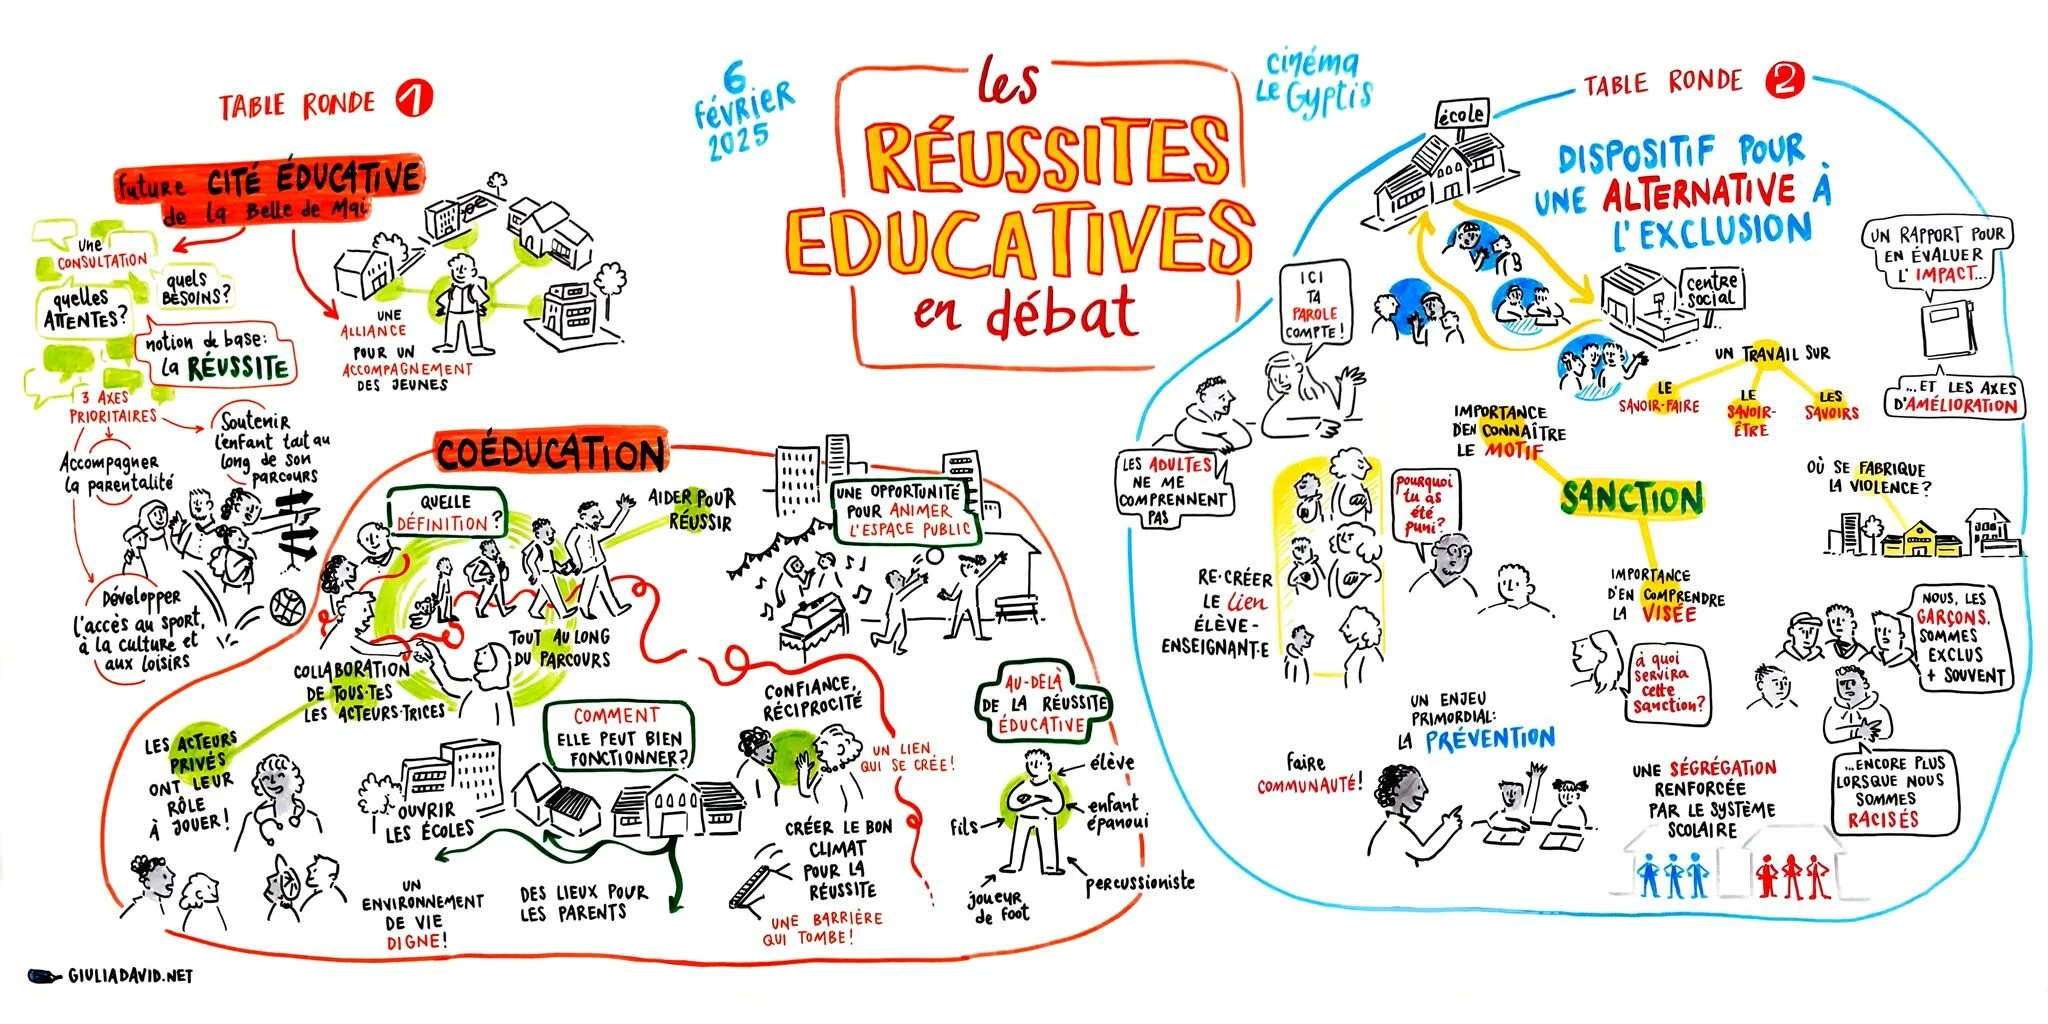 les
RÉUSSITES
EDUCATIVES
en débat
6
février
2025
cinéma
Le Gyptis
TABLE RONDE 1
future CITÉ ÉDUCATIVE
de la Belle de Mai
UNE
CONSULTATION
quels
BESOINS?
quelles
ATTENTES?
notion de base:
la RÉUSSITE
3 AXES
PRIORITAIRES
Soutenir
l'enfant tout au
long de son
parcours
Accompagner
la parentalité
Développer
l'accès au sport,
à la culture et
aux loisirs
UNE
ALLIANCE
POUR UN
ACCOMPAGNEMENT
DES JEUNES
COÉDUCATION
QUELLE
DÉFINITION?
AIDER POUR
RÉUSSIR
TOUT AU LONG
DU PARCOURS
COLLABORATION
DE TOUS·TES
LES ACTEURS·TRICES
LES ACTEURS
PRIVÉS
ONT LEUR
RÔLE
À JOUER!
UNE OPPORTUNITÉ
POUR ANIMER
L'ESPACE PUBLIC
COMMENT
ELLE PEUT BIEN
FONCTIONNER?
OUVRIR
LES ÉCOLES
UN
ENVIRONNEMENT
DE VIE
DIGNE!
DES LIEUX POUR
LES PARENTS
CONFIANCE,
RÉCIPROCITÉ
UN LIEN
QUI SE CRÉE!
CRÉER LE BON
CLIMAT
POUR LA
RÉUSSITE
UNE BARRIÈRE
QUI TOMBE!
AU-DELÀ
DE LA RÉUSSITE
ÉDUCATIVE
élève
enfant
épanoui
fils
percussioniste
joueur
de foot
GIULIADAVID.NET
TABLE RONDE 2
DISPOSITIF POUR
UNE ALTERNATIVE À
L'EXCLUSION
école
centre
social
UN TRAVAIL SUR
LE
SAVOIR-FAIRE
LE
SAVOIR-
ÊTRE
LES
SAVOIRS
UN RAPPORT POUR
EN ÉVALUER
L'IMPACT...
...ET LES AXES
D'AMÉLIORATION
ICI
TA
PAROLE
COMPTE!
LES ADULTES
NE ME
COMPRENNENT
PAS
RE·CRÉER
LE lien
ÉLÈVE-
ENSEIGNANT·E
IMPORTANCE
D'EN CONNAÎTRE
LE MOTIF
SANCTION
pourquoi
tu as
été
puni?
IMPORTANCE
D'EN COMPRENDRE
LA VISÉE
à quoi
servira
cette
sanction?
OÙ SE FABRIQUE
LA VIOLENCE?
NOUS, LES
GARÇONS,
SOMMES
EXCLUS
+ SOUVENT
...ENCORE PLUS
LORSQUE NOUS
SOMMES
RACISÉS
UN ENJEU
PRIMORDIAL:
LA PRÉVENTION
faire
COMMUNAUTÉ!
UNE SÉGRÉGATION
RENFORCÉE
PAR LE SYSTÈME
SCOLAIRE